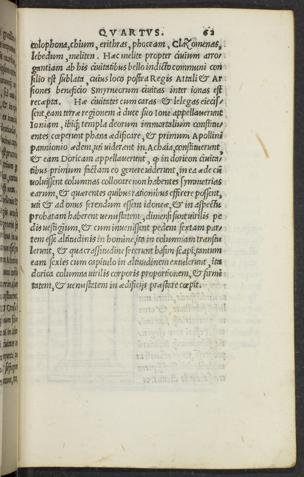 QVARTVS. 62
colophona, chium, erithras, phoceam, Clazomenas,
lebedum, meliten. Hæc melite propter ciuium arro
gantiam ab his ciuitatibus bello indicto communi con
silio est sublata, cuius loco postea Regis Attali & Ar
sinoes beneficio Smyrneorum ciuitas inter ionas est
recæpta. Hæ ciuitates cum caras & lelegas eiecis
sent, eam terræ regionem à duce suo Ione appellauerunt
Ioniam, ibiq; templa deorum immortalium constitu
entes cœperunt phana ædificare, & primum Apollini
pannionio ædem, uti uiderant in Achaia, constituerunt,
& eam Doricam appellauerunt, in doricon ciuita
tibus primum factam eo genere uiderunt, in ea æde cũ
uoluissent columnas collocare non habentes symmetrias
earum, & quærentes quibus rationibus efficere possent,
uti & ad onus ferendum essent idoneæ, & in aspectu
probatam haberent uenustatem, dimensi sunt uirilis pe
dis uestigium, & cum inuenissent pedem sextam par
tem esse altitudinis in homine, ita in columnam transtu
lerunt, & qua crassitudine fecerunt basim scapi, tantum
eam sexies cum capitulo in altitudinem extulerunt, ita
dorica columna uirilis corporis proportionem, & firmi
tatem, & uenustatem in ædificijs præstare cœpit.